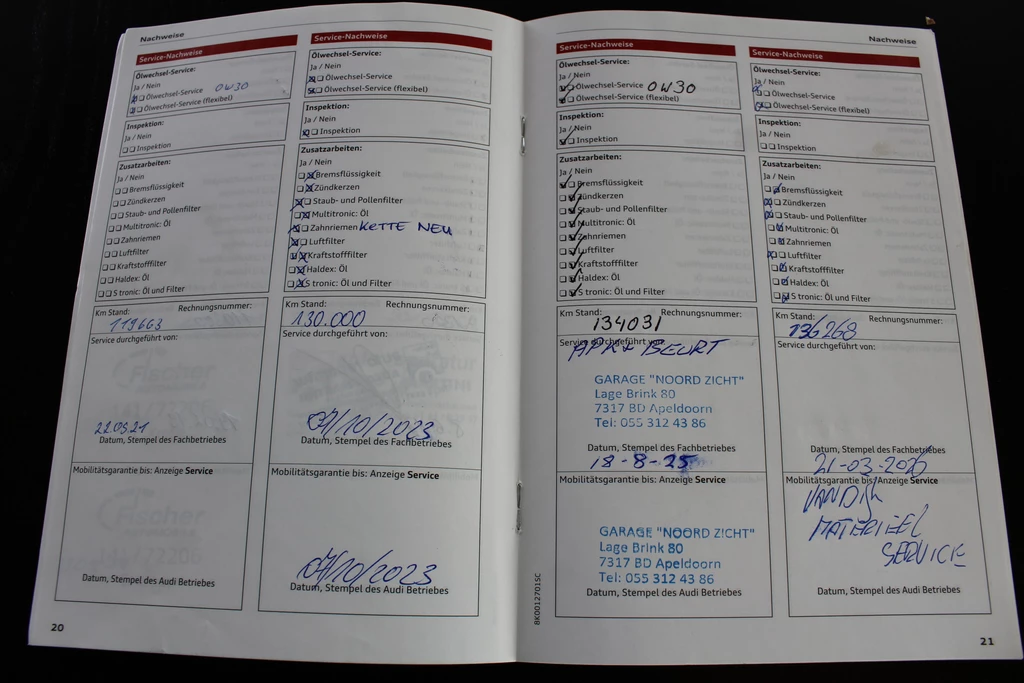 Nachweise
Service-Nachweise
Ölwechsel-Service:
Ja / Nein
Ölwechsel-Service 0W30
Ölwechsel-Service (flexibel)
Inspektion:
Ja / Nein
Inspektion
Zusatzarbeiten:
Ja / Nein
Bremsflüssigkeit
Zündkerzen
Staub- und Pollenfilter
Multitronic: Öl
Zahnriemen
Luftfilter
Kraftstofffilter
Haldex: Öl
S tronic: Öl und Filter
Km Stand: Rechnungsnummer:
119663
Service durchgeführt von:
22.05.21
Datum, Stempel des Fachbetriebes
Mobilitätsgarantie bis: Anzeige Service
Datum, Stempel des Audi Betriebes
20
Service-Nachweise
Ölwechsel-Service:
Ja / Nein
Ölwechsel-Service
Ölwechsel-Service (flexibel)
Inspektion:
Ja / Nein
Inspektion
Zusatzarbeiten:
Ja / Nein
Bremsflüssigkeit
Zündkerzen
Staub- und Pollenfilter
Multitronic: Öl
Zahnriemen KETTE NEU
Luftfilter
Kraftstofffilter
Haldex: Öl
S tronic: Öl und Filter
Km Stand: Rechnungsnummer:
130.000
Service durchgeführt von:
07/10/2023
Datum, Stempel des Fachbetriebes
Mobilitätsgarantie bis: Anzeige Service
07/10/2023
Datum, Stempel des Audi Betriebes
Service-Nachweise
Ölwechsel-Service:
Ja / Nein
Ölwechsel-Service 0W30
Ölwechsel-Service (flexibel)
Inspektion:
Ja / Nein
Inspektion
Zusatzarbeiten:
Ja / Nein
Bremsflüssigkeit
Zündkerzen
Staub- und Pollenfilter
Multitronic: Öl
Zahnriemen
Luftfilter
Kraftstofffilter
Haldex: Öl
S tronic: Öl und Filter
Km Stand: Rechnungsnummer:
134031
Service durchgeführt von:
APK + BEURT
GARAGE "NOORD ZICHT"
Lage Brink 80
7317 BD Apeldoorn
Tel: 055 312 43 86
Datum, Stempel des Fachbetriebes
18-8-25
Mobilitätsgarantie bis: Anzeige Service
GARAGE "NOORD ZICHT"
Lage Brink 80
7317 BD Apeldoorn
Tel: 055 312 43 86
Datum, Stempel des Audi Betriebes
8K0012701SC
Nachweise
Service-Nachweise
Ölwechsel-Service:
Ja / Nein
Ölwechsel-Service
Ölwechsel-Service (flexibel)
Inspektion:
Ja / Nein
Inspektion
Zusatzarbeiten:
Ja / Nein
Bremsflüssigkeit
Zündkerzen
Staub- und Pollenfilter
Multitronic: Öl
Zahnriemen
Luftfilter
Kraftstofffilter
Haldex: Öl
S tronic: Öl und Filter
Km Stand: Rechnungsnummer:
136268
Service durchgeführt von:
Datum, Stempel des Fachbetriebes
21-03-2026
Mobilitätsgarantie bis: Anzeige Service
VAN DIJK
MATERIEEL
SERVICE
Datum, Stempel des Audi Betriebes
21